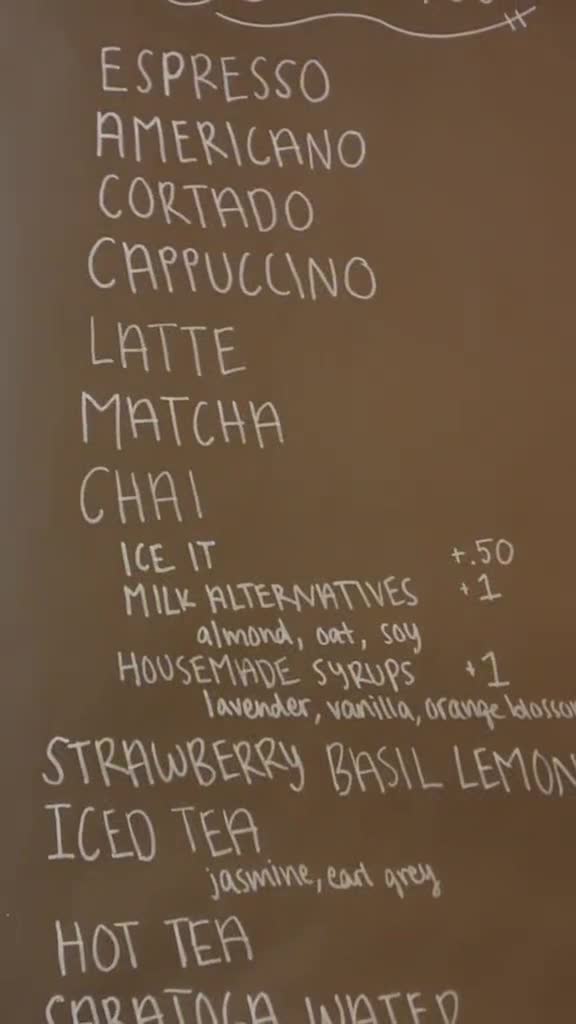 ESPRESSO
AMERICANO
CORTADO
CAPPUCCINO
LATTE
MATCHA
CHAI
ICE IT +.50
MILK ALTERNATIVES +1
almond, oat, soy
HOUSEMADE SYRUPS +1
lavender, vanilla, orange blossom
STRAWBERRY BASIL LEMON
ICED TEA
jasmine, earl grey
HOT TEA
SARATOGA WATER